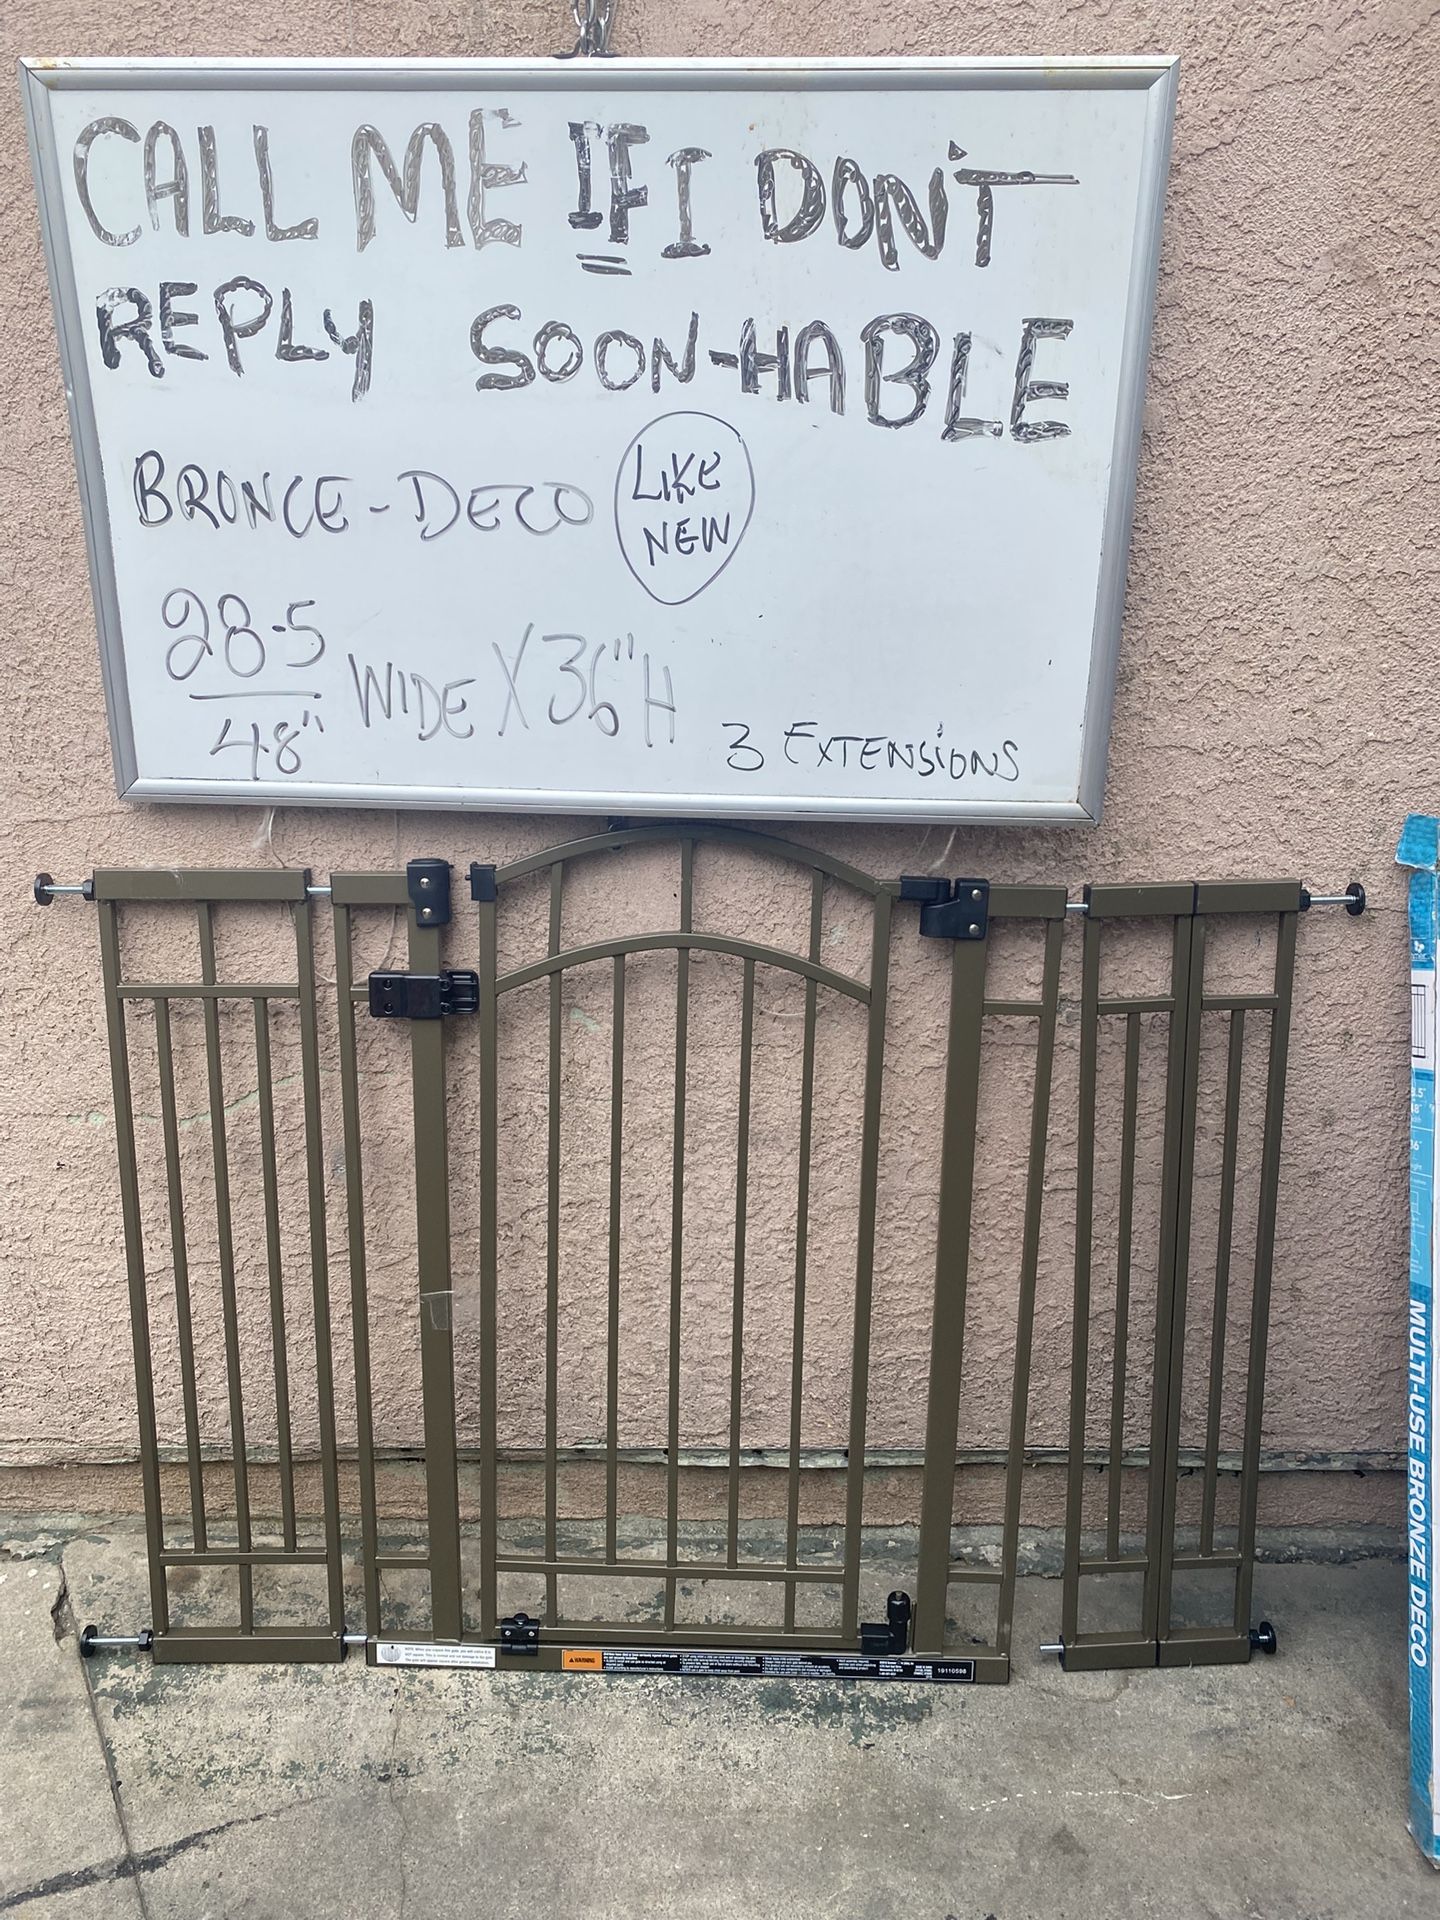 CALL ME IF I DON'T
REPLY SOON-HABLE
BRONCE-DECO LIKE
NEW
28.5
48" WIDE X 36" H
3 EXTENSIONS
WARNING
19110598
MULTI-USE BRONZE DECO